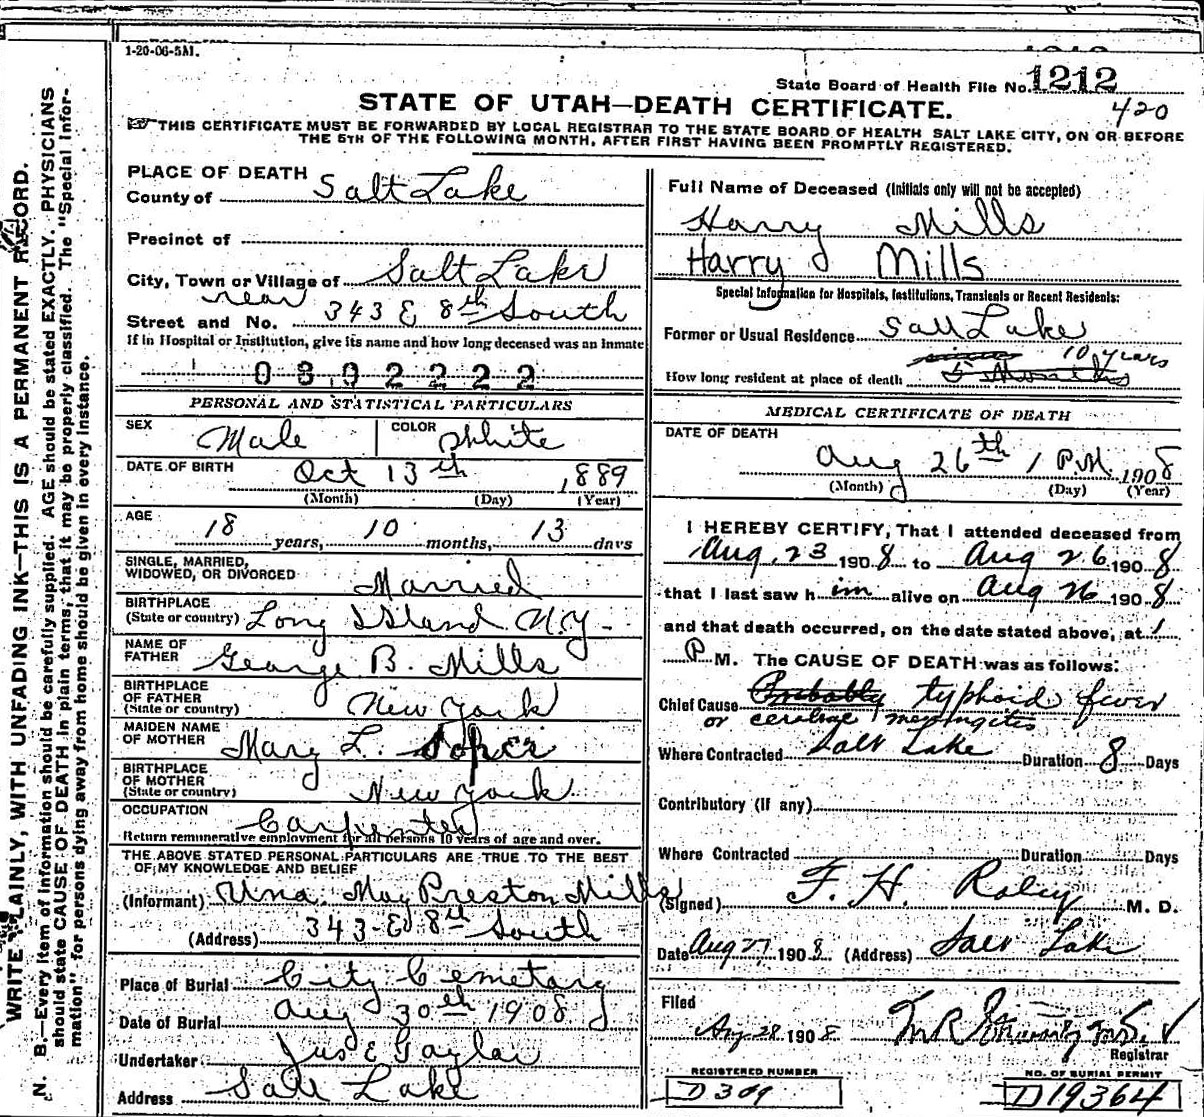 1-20-06-5M.
State Board of Health File No. 1212
420
STATE OF UTAH—DEATH CERTIFICATE.
THIS CERTIFICATE MUST BE FORWARDED BY LOCAL REGISTRAR TO THE STATE BOARD OF HEALTH SALT LAKE CITY, ON OR BEFORE
THE 5TH OF THE FOLLOWING MONTH, AFTER FIRST HAVING BEEN PROMPTLY REGISTERED.
WRITE PLAINLY, WITH UNFADING INK—THIS IS A PERMANENT RECORD.
N. B.—Every item of information should be carefully supplied. AGE should be stated EXACTLY. PHYSICIANS
should state CAUSE OF DEATH in plain terms, that it may be properly classified. The "Special Infor-
mation" for persons dying away from home should be given in every instance.
PLACE OF DEATH
County of Salt Lake
Precinct of
City, Town or Village of Salt Lake
near
Street and No. 343 E 8th South
If in Hospital or Institution, give its name and how long deceased was an Inmate
0802222
PERSONAL AND STATISTICAL PARTICULARS
SEX Male COLOR White
DATE OF BIRTH Oct 13th 1889
(Month) (Day) (Year)
AGE 18 years, 10 months, 13 days
SINGLE, MARRIED,
WIDOWED, OR DIVORCED Married
BIRTHPLACE
(State or country) Long Island N.Y.
NAME OF
FATHER George B. Mills
BIRTHPLACE
OF FATHER
(State or country) New York
MAIDEN NAME
OF MOTHER Mary L. Soper
BIRTHPLACE
OF MOTHER
(State or country) New York
OCCUPATION Carpenter
Return remunerative employment for all persons 10 years of age and over.
THE ABOVE STATED PERSONAL PARTICULARS ARE TRUE TO THE BEST
OF MY KNOWLEDGE AND BELIEF
(Informant) Una May Preston Mills
(Address) 343 E 8th South
Place of Burial City Cemetary
Date of Burial Aug 30th 1908
Undertaker Jos E Taylor
Address Salt Lake
Full Name of Deceased (Initials only will not be accepted)
Harry Mills
Harry Mills
Special Information for Hospitals, Institutions, Transients or Recent Residents:
Former or Usual Residence Salt Lake
10 years
How long resident at place of death 5 Months
MEDICAL CERTIFICATE OF DEATH
DATE OF DEATH
Aug 26th 1 P.M. 1908
(Month) (Day) (Year)
I HEREBY CERTIFY, That I attended deceased from
Aug. 23 1908 to Aug 26 1908
that I last saw him alive on Aug 26 1908
and that death occurred, on the date stated above, at 1
P M. The CAUSE OF DEATH was as follows:
Chief Cause Probably typhoid fever
or cerebral meningites
Where Contracted Salt Lake Duration 8 Days
Contributory (If any)
Where Contracted Duration Days
(Signed) F. H. Raley M. D.
Date Aug 27 1908 (Address) Salt Lake
Filed
Aug 28 1908
Registrar
REGISTERED NUMBER
D 309
NO. OF BURIAL PERMIT
D19364